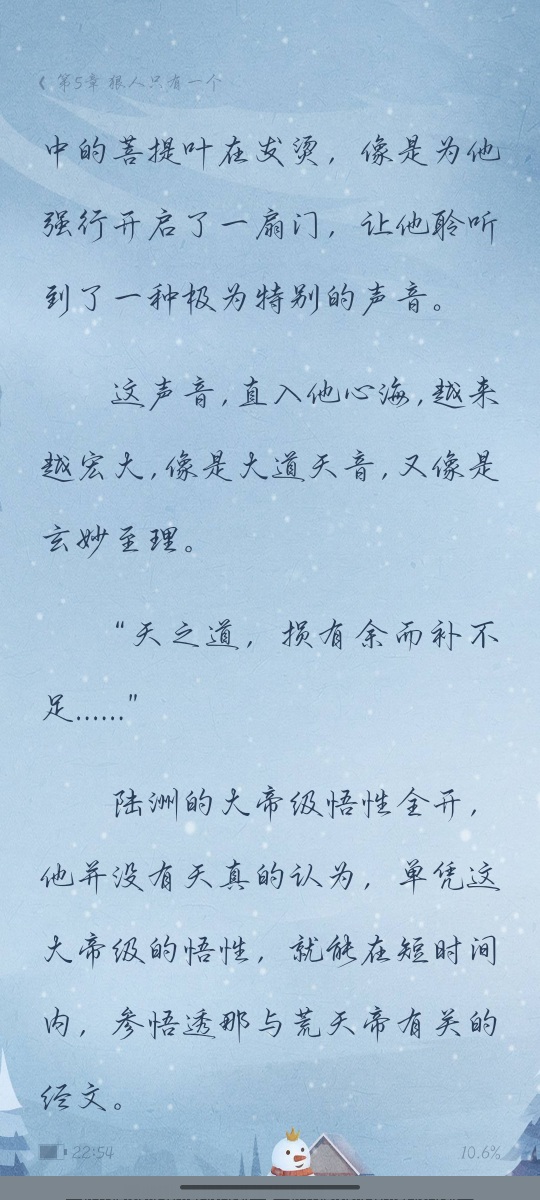 第5章 狠人只有一个
中的菩提叶在发烫，像是为他
强行开启了一扇门，让他聆听
到了一种极为特别的声音。
这声音，直入他心海，越来
越宏大，像是大道天音，又像是
玄妙至理。
“天之道，损有余而补不
足……”
陆洲的大帝级悟性全开，
他并没有天真的认为，单凭这
大帝级的悟性，就能在短时间
内，参悟透那与荒天帝有关的
经文。
22:54
10.6%